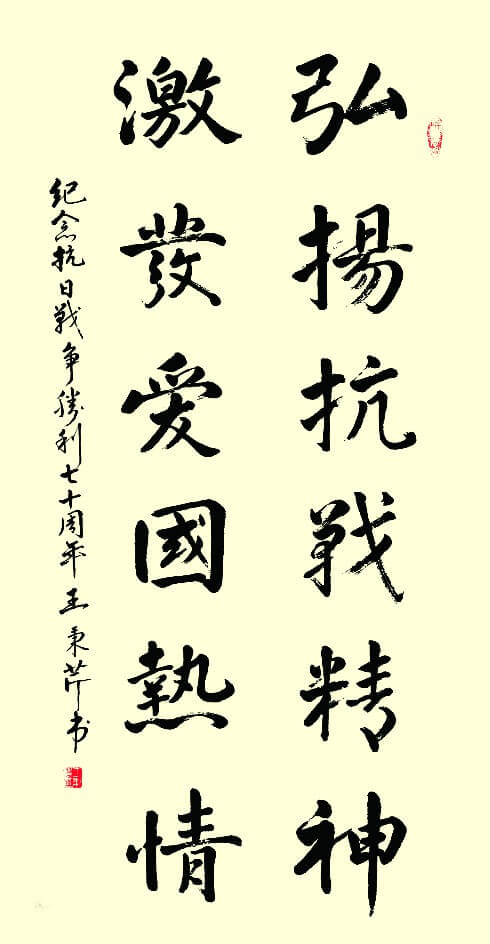 弘揚抗戰精神
激發爱國熱情
纪念抗日戰争勝利七十周年王秉芹书